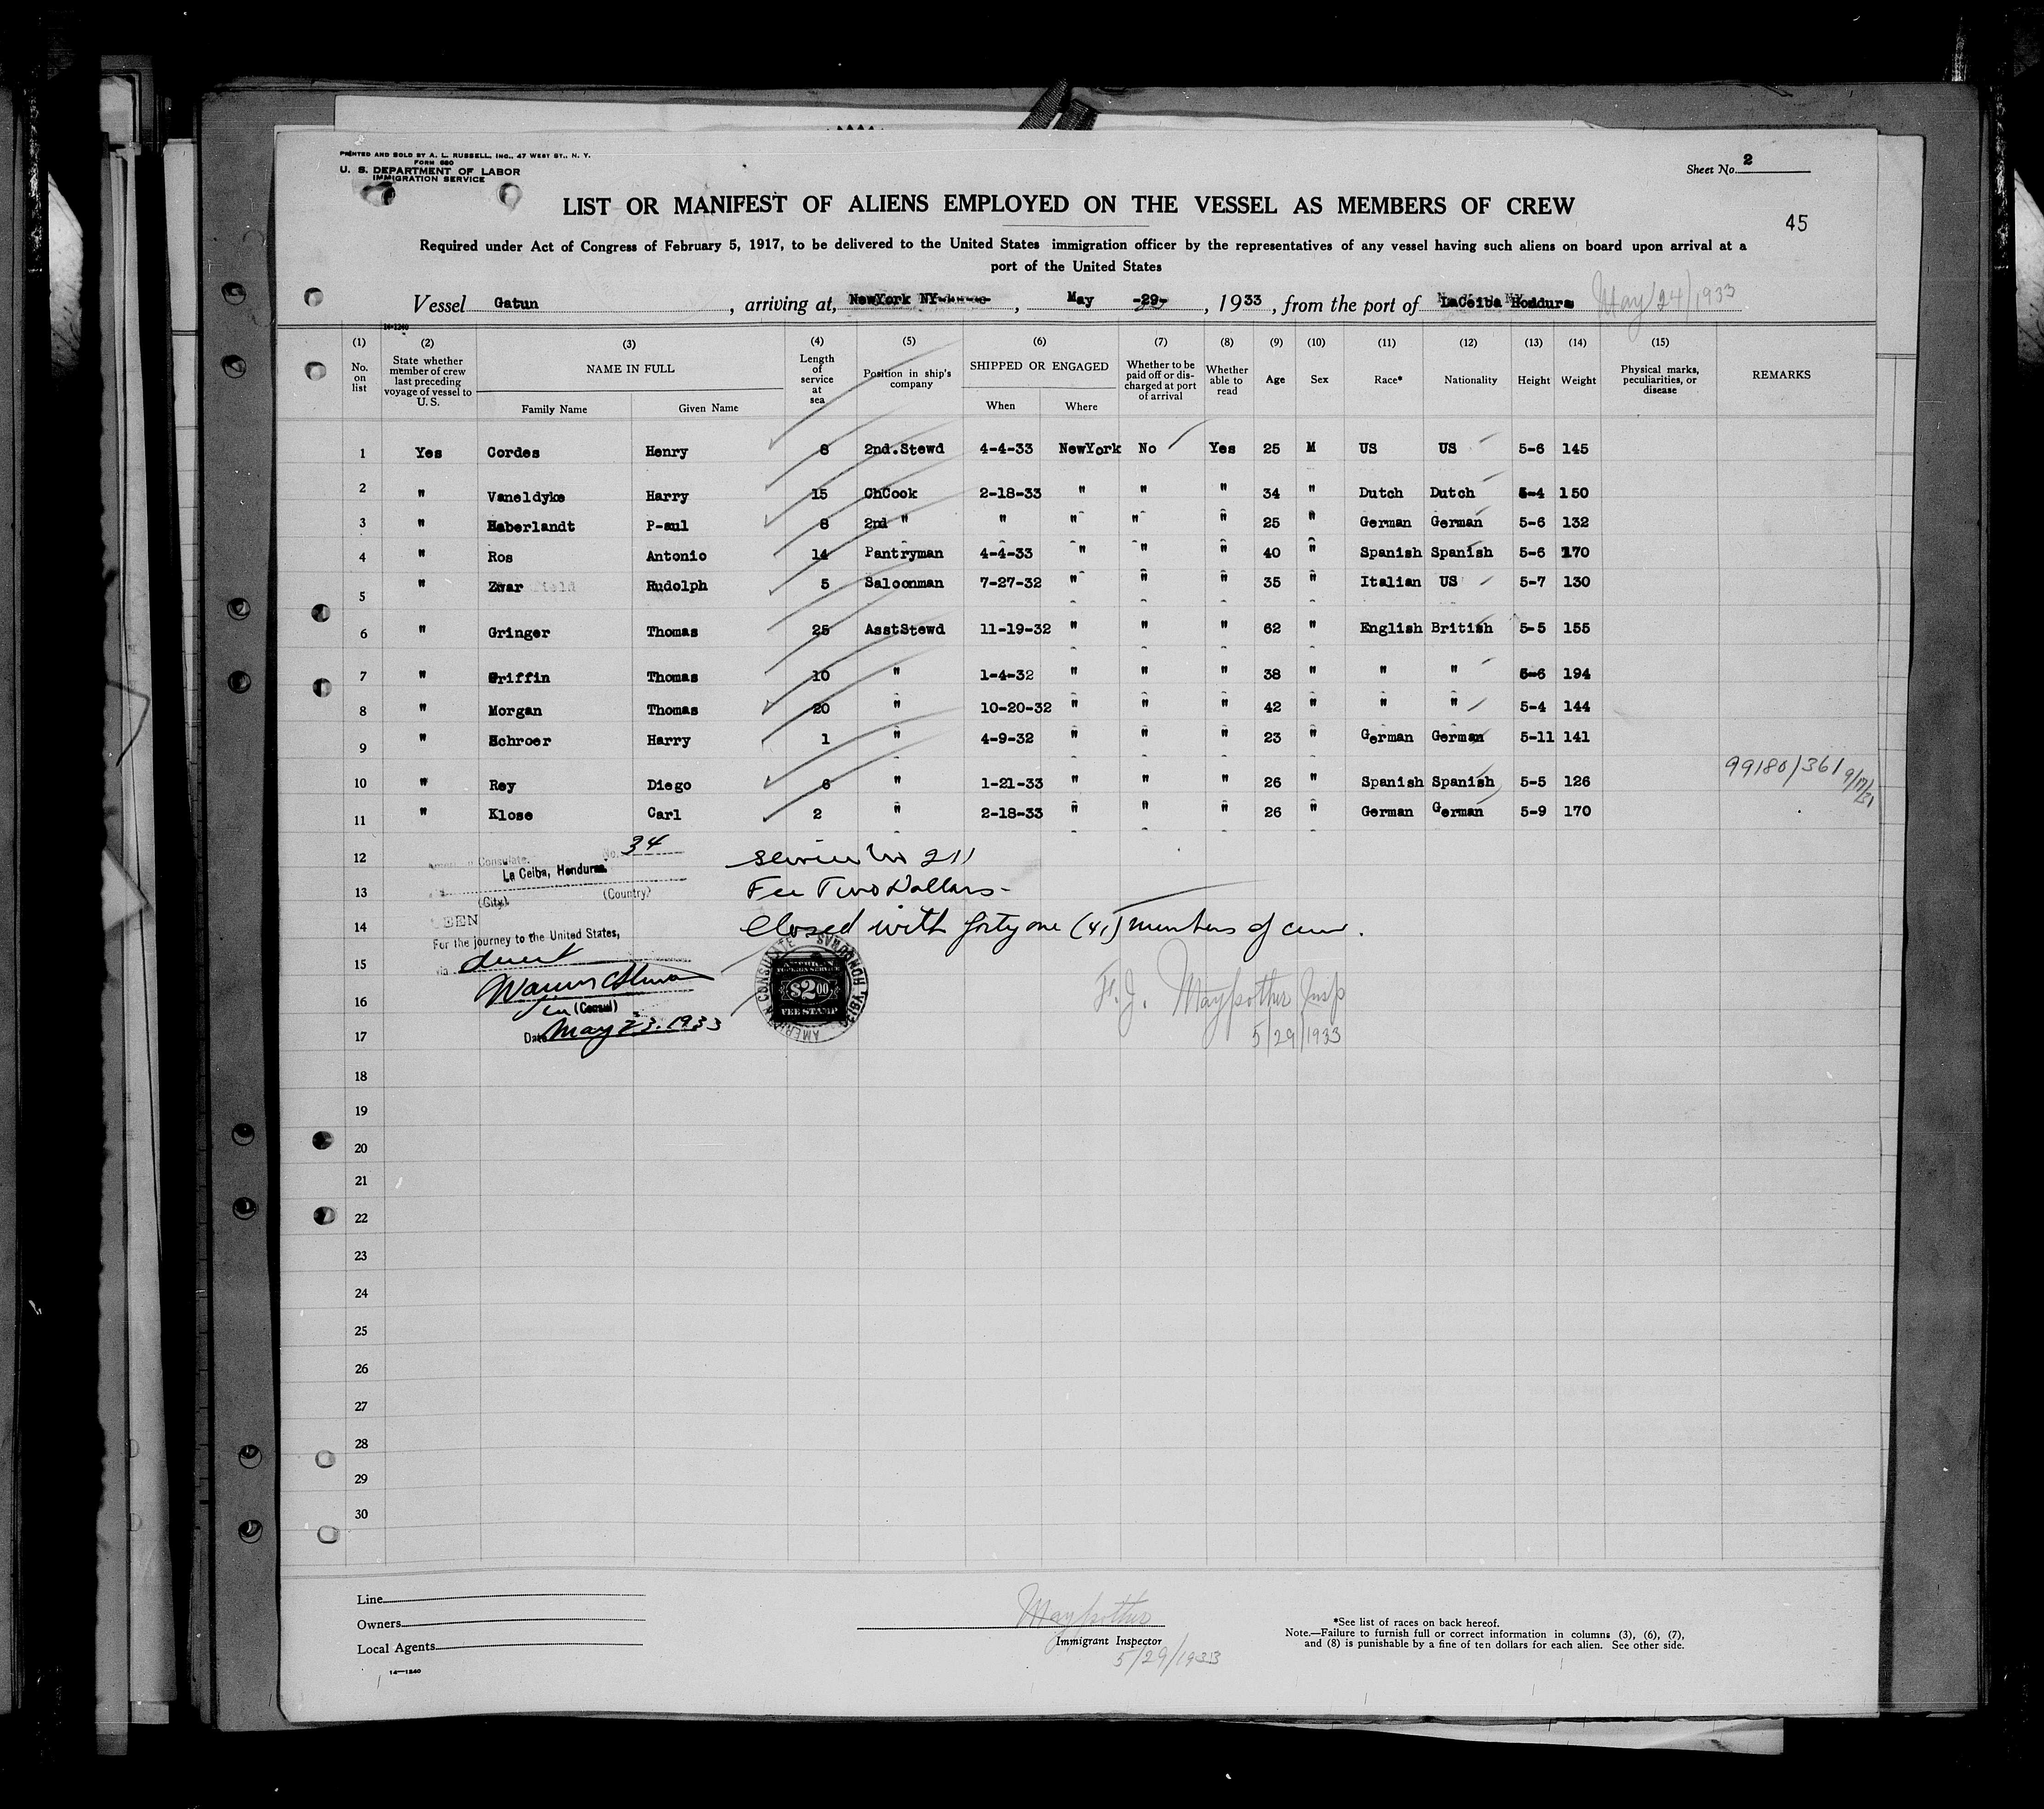 PRINTED AND SOLD BY A. L. RUSSELL, INC., 47 WEST ST., N. Y.
FORM 680
U. S. DEPARTMENT OF LABOR
IMMIGRATION SERVICE
Sheet No. 2
LIST OR MANIFEST OF ALIENS EMPLOYED ON THE VESSEL AS MEMBERS OF CREW
45
Required under Act of Congress of February 5, 1917, to be delivered to the United States immigration officer by the representatives of any vessel having such aliens on board upon arrival at a
port of the United States
Vessel Gatun, arriving at, NewYork NY, May -29-, 1933, from the port of LaCeiba Honduras May/24/1933
14-1240
(1) No. on list
(2) State whether member of crew last preceding voyage of vessel to U. S.
(3) NAME IN FULL Family Name Given Name
(4) Length of service at sea
(5) Position in ship's company
(6) SHIPPED OR ENGAGED When Where
(7) Whether to be paid off or discharged at port of arrival
(8) Whether able to read
(9) Age
(10) Sex
(11) Race*
(12) Nationality
(13) Height
(14) Weight
(15) Physical marks, peculiarities, or disease
REMARKS
1 Yes Cordes Henry 8 2nd.Stewd 4-4-33 NewYork No Yes 25 M US US 5-6 145
2 " Vaneldyke Harry 15 ChCook 2-18-33 " " " 34 " Dutch Dutch 5-4 150
3 " Haberlandt P-aul 8 2nd " " " " " 25 " German German 5-6 132
4 " Ros Antonio 14 Pantryman 4-4-33 " " " 40 " Spanish Spanish 5-6 170
5 " Zwar Rudolph 5 Saloonman 7-27-32 " " " 35 " Italian US 5-7 130
6 " Gringer Thomas 25 AsstStewd 11-19-32 " " " 62 " English British 5-5 155
7 " Griffin Thomas 10 " 1-4-32 " " " 38 " " " 5-6 194
8 " Morgan Thomas 20 " 10-20-32 " " " 42 " " " 5-4 144
9 " Schroer Harry 1 " 4-9-32 " " " 23 " German German 5-11 141
10 " Rey Diego 6 " 1-21-33 " " " 26 " Spanish Spanish 5-5 126 99180/361 9/17/31
11 " Klose Carl 2 " 2-18-33 " " " 26 " German German 5-9 170
12
13
14
15
16
17
18
19
20
21
22
23
24
25
26
27
28
29
30
American Consulate. No. 34
La Ceiba, Honduras
(City) (Country)
SEEN
For the journey to the United States,
via direct
(Consul)
Date May 23, 1933
Service No 211
Fee Two Dollars-
Closed with forty one (41) members of crew.
AMERICAN CONSULATE LA CEIBA, HONDURAS
AMERICAN
FOREIGN SERVICE
$2.00
FEE STAMP
F. J. Maypother Insp
5/29/1933
Line
Owners
Local Agents
14-1240
Maypother
Immigrant Inspector
5/29/1933
*See list of races on back hereof.
Note.—Failure to furnish full or correct information in columns (3), (6), (7),
and (8) is punishable by a fine of ten dollars for each alien. See other side.